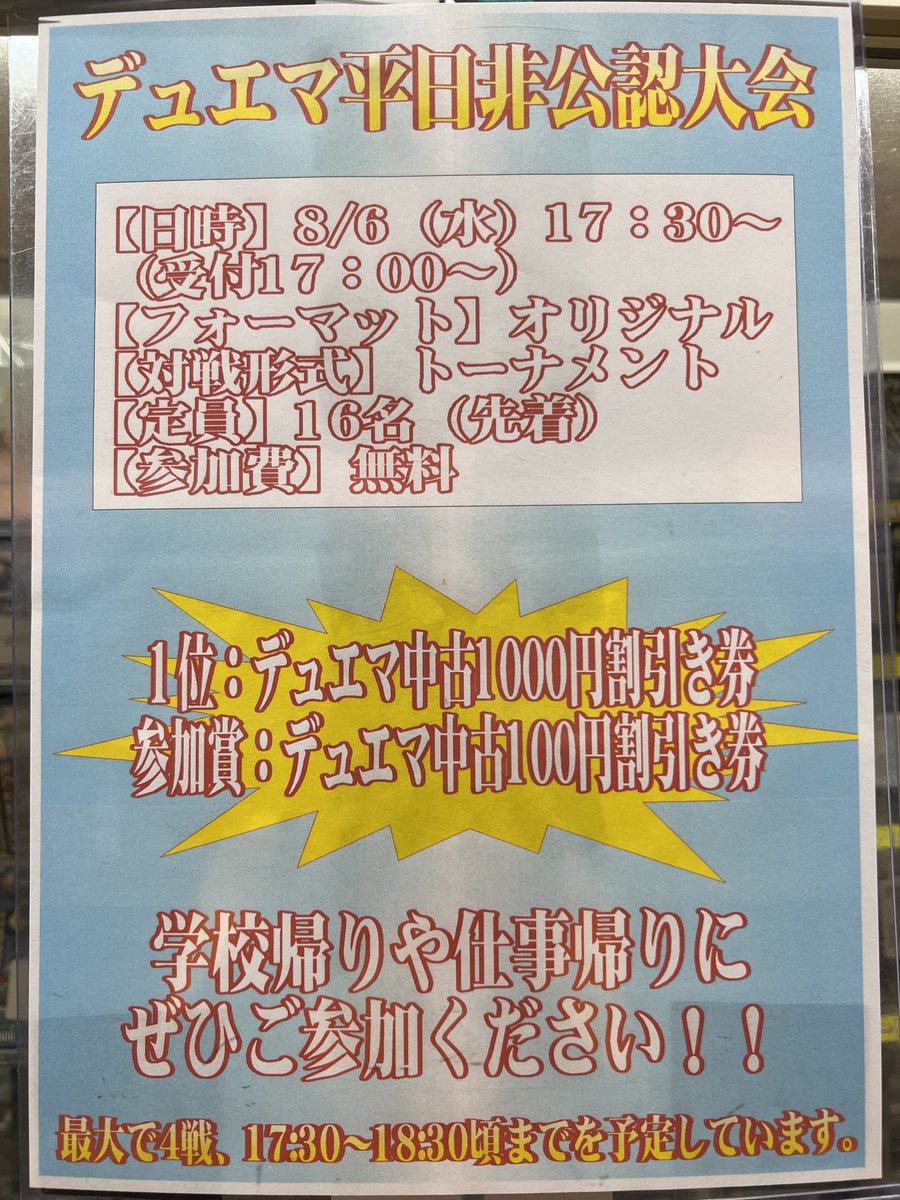 デュエマ平日非公認大会
【日時】8/6（水）17：30～
（受付17：00～）
【フォーマット】オリジナル
【対戦形式】トーナメント
【定員】16名（先着）
【参加費】無料
1位：デュエマ中古1000円割引き券
参加賞：デュエマ中古100円割引き券
学校帰りや仕事帰りに
ぜひご参加ください！！
最大で4戦、17:30～18:30頃までを予定しています。